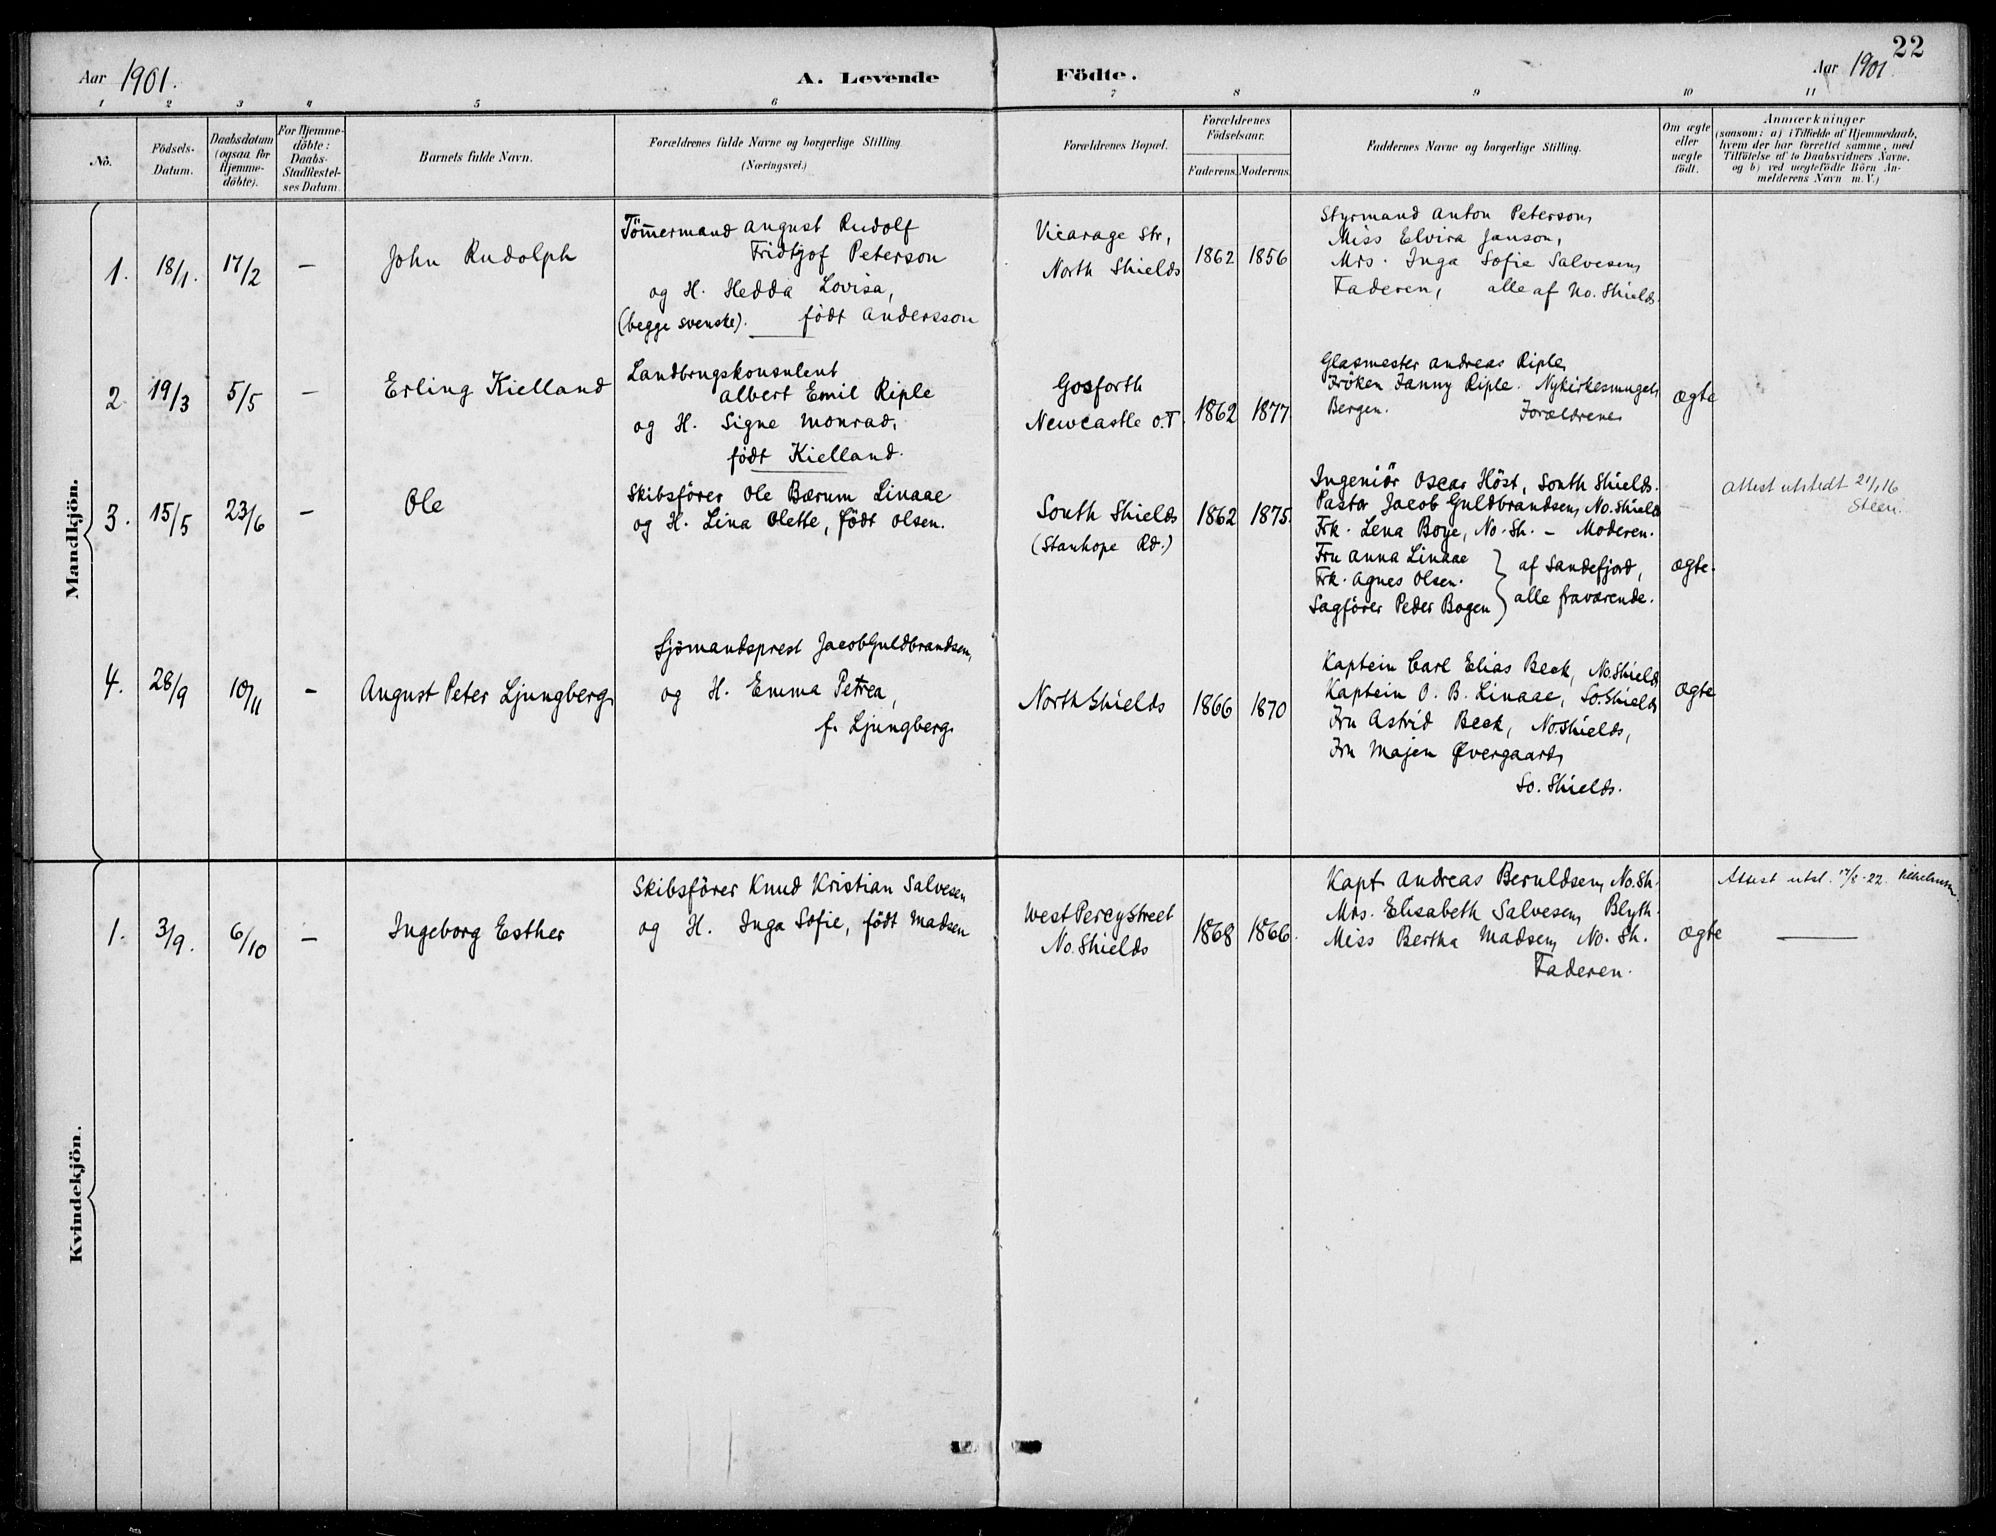 22
Aar 1901.
A. Levende Födte.
Aar 1901.
1 2 3 4 5 6 7 8 9 10 11
No.
Födsels-
Datum.
Daabsdatum
(ogsaa for
Hjemme-
döbte).
For Hjemme-
döbte:
Daabs-
Stadfæstel-
ses Datum.
Barnets fulde Navn.
Forældrenes fulde Navne og borgerlige Stilling
(Næringsvei.)
Forældrenes Bopæl.
Forældrenes
Födselsaar.
Faderens. Moderens.
Faddernes Navne og borgerlige Stilling.
Om ægte
eller
uægte
födt.
Anmærkninger
(saasom: a) i Tilfælde af Hjemmedaab,
hvem der har forrettet samme, med
Tilföielse af to Daabsvidners Navne.
og b) ved uægtefödte Börn An-
melderens Navn m. V.)
Mandkjön.
1. 18/1. 17/2 — John Rudolph
Tömmermand August Rudolf
Fridtjof Peterson
og H. Hedda Lovisa,
(begge svenske). født Andersson
Vicarage Str,
North Shields
1862 1856
Styrmand Anton Peterson,
Miss Elvira Janson,
Mrs. Inga Sofie Salvesen,
Faderen, alle af No. Shields.
2 19/3 5/5 — Erling Kielland
Landbrugskonsulent
Albert Emil Riple
og H. Signe Monrad,
født Kielland.
Gosforth
Newcastle o.T.
1862 1877
Glasmester Andreas Riple,
Fröken Fanny Riple. Nykirkesmuget,
Bergen. Forældrene
ægte
3. 15/5 23/6 — Ole
Skibsförer Ole Bærum Linaae
og H. Lina Olette, født Olsen.
South Shields
(Stanhope Rd.)
1862 1875.
Ingeniör Oscar Höst, South Shields.
Pastor Jacob Guldbrandsen, No. Shields
Frk. Lena Boye, No. Sh. — Moderen.
Fru Anna Linaae
Frk. Agnes Olsen.
Sagförer Peder Bogen
af Sandefjord,
alle fraværende.
ægte.
Attest utstedt 21/1 16
Steen.
4. 28/9 10/11 — August Peter Ljungberg
Sjømandsprest Jacob Guldbrandsen,
og H. Emma Petrea,
f. Ljungberg
North Shields
1866 1870
Kaptein Carl Elias Beck, No. Shields
Kaptein O. B. Linaae, So. Shields
Fru Astrid Beck, No. Shields,
Fru Majen Øvergaard,
So. Shields.
ægte
Kvindekjön.
1. 3/9. 6/10 — Ingeborg Esther
Skibsförer Knud Kristian Salvesen
og H. Inga Sofie, født Madsen
West Percy Street
No. Shields
1868 1866.
Kapt. Andreas Beruldsen, No. Sh.
Mrs. Elisabeth Salvesen, Blyth.
Miss Bertha Madsen, No. Sh.
Faderen.
ægte
Attest utst. 17/8-22.